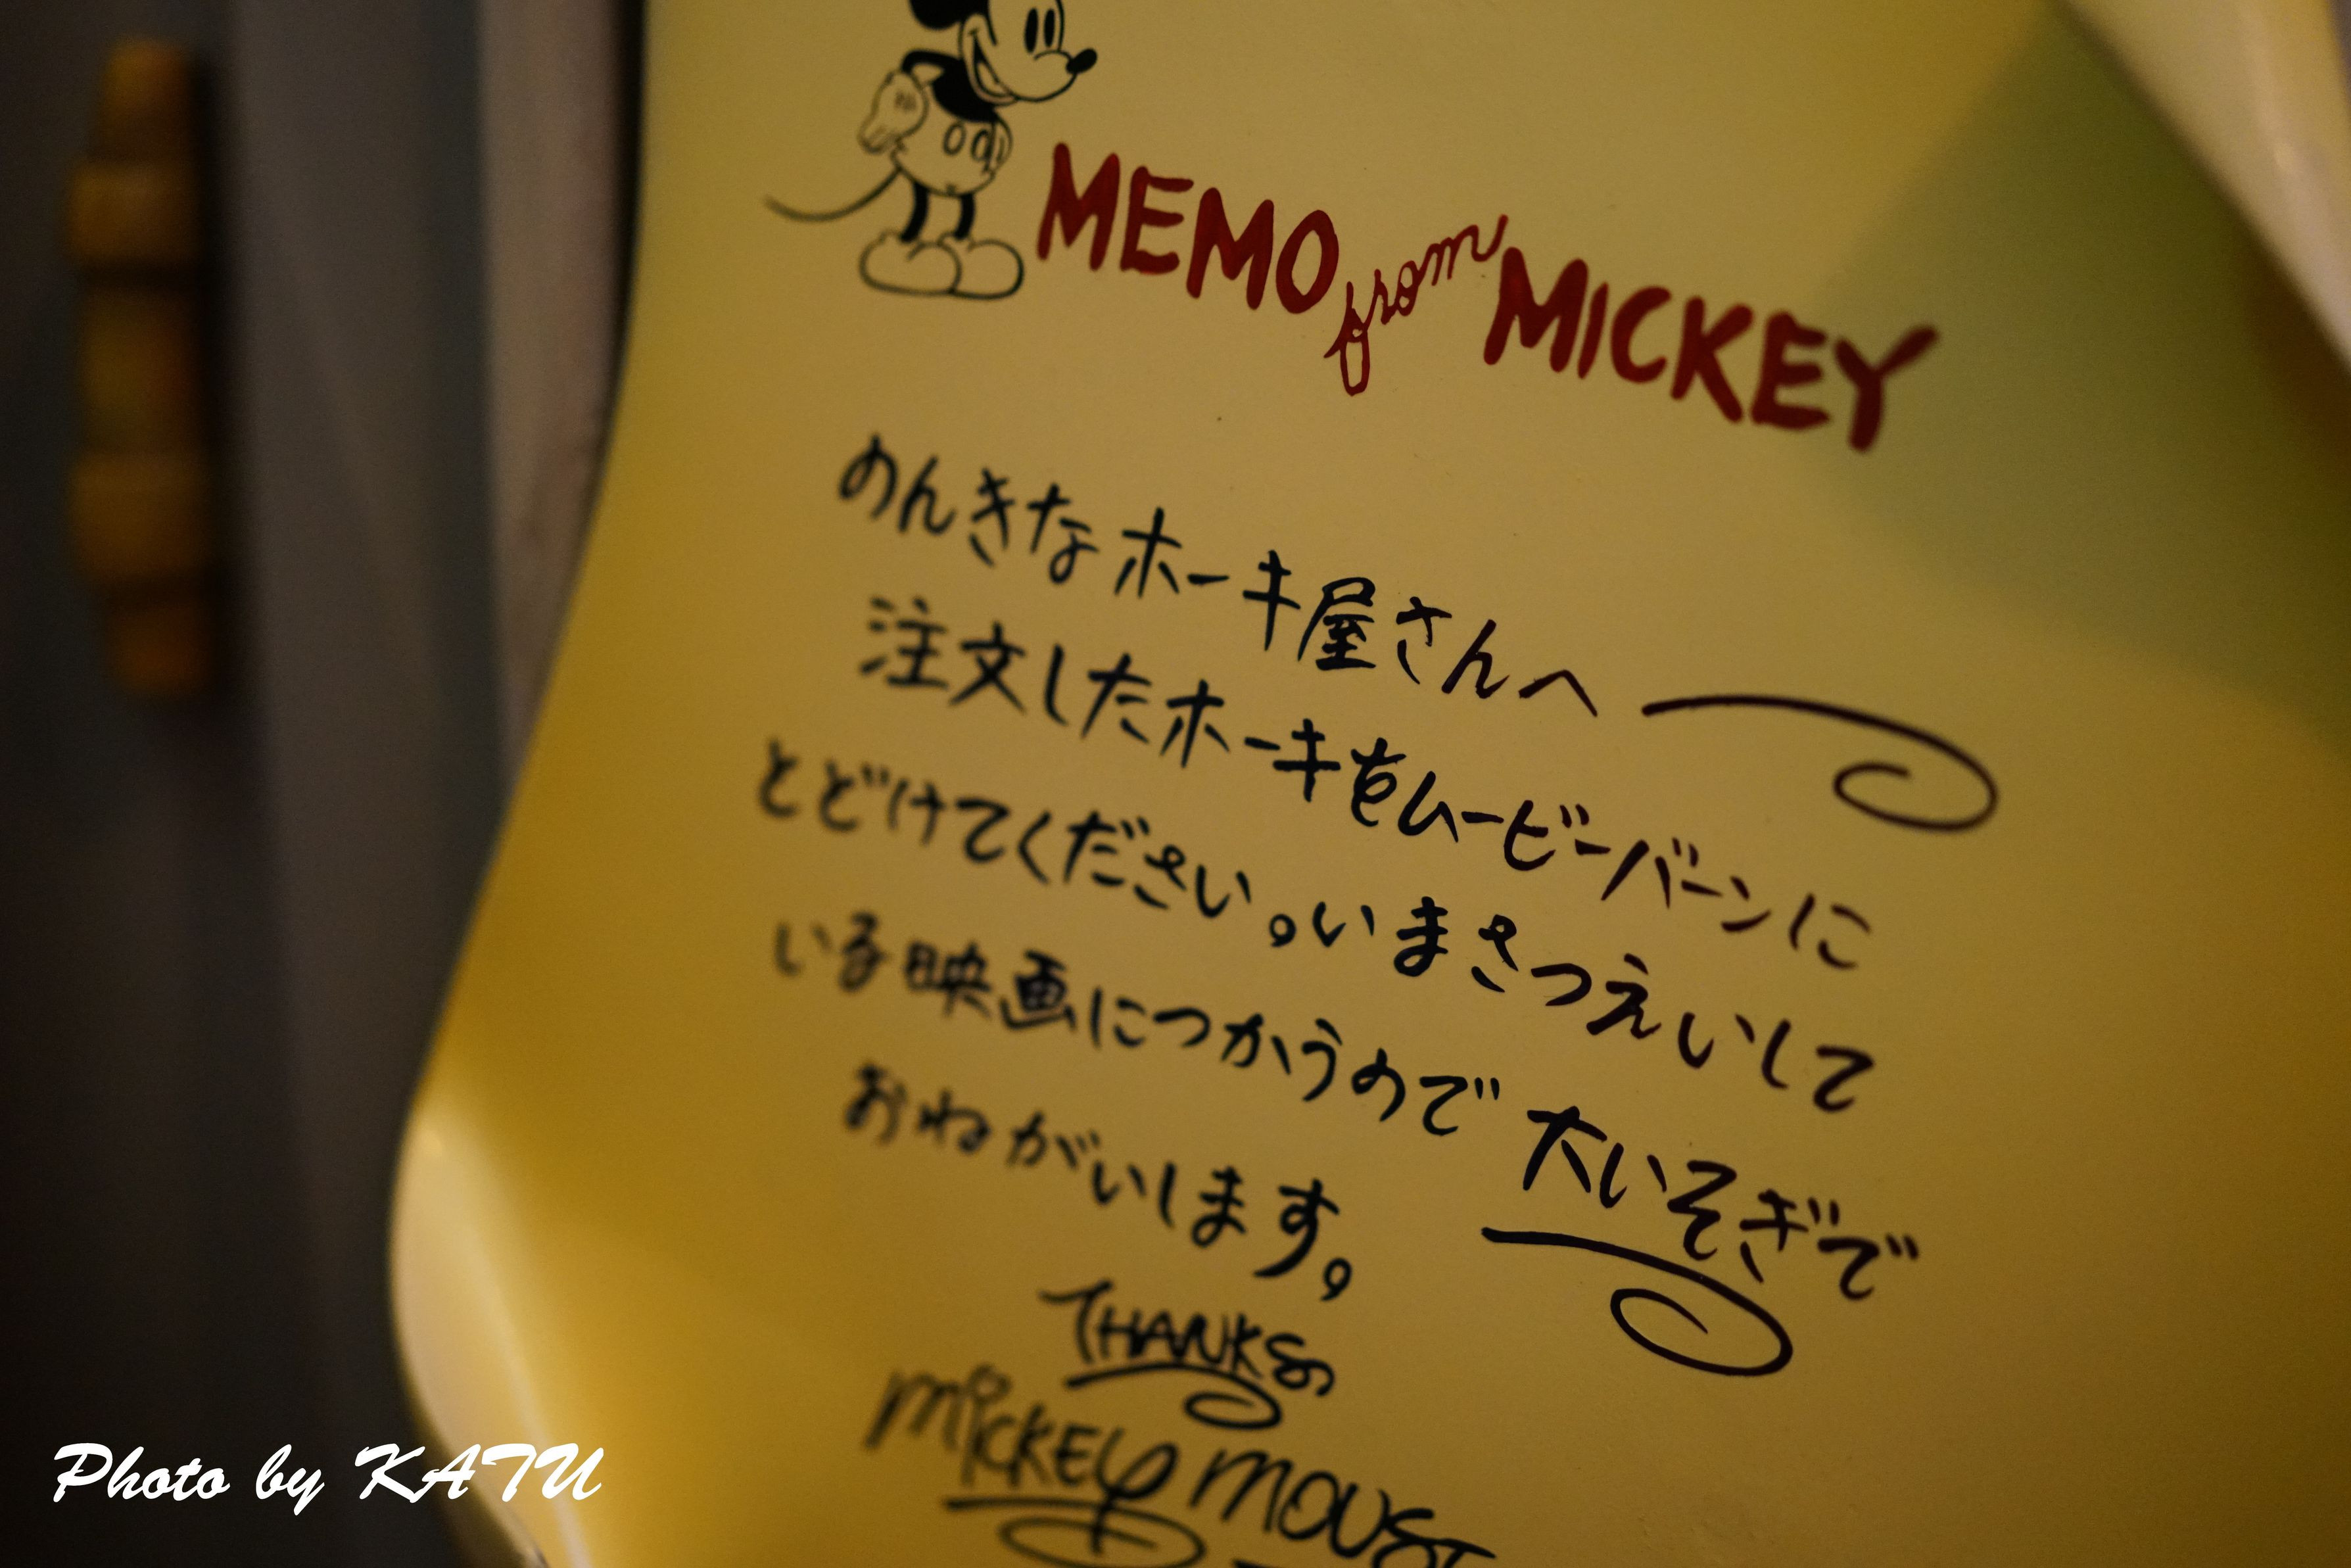 MEMO from MICKEY
のんきなホーキ屋さんへ
注文したホーキをムービーバーンに
とどけてください。いまさつえいして
いる映画につかうので大いそぎで
おねがいします。
THANKS
MICKEY MOUSE
Photo by KATU